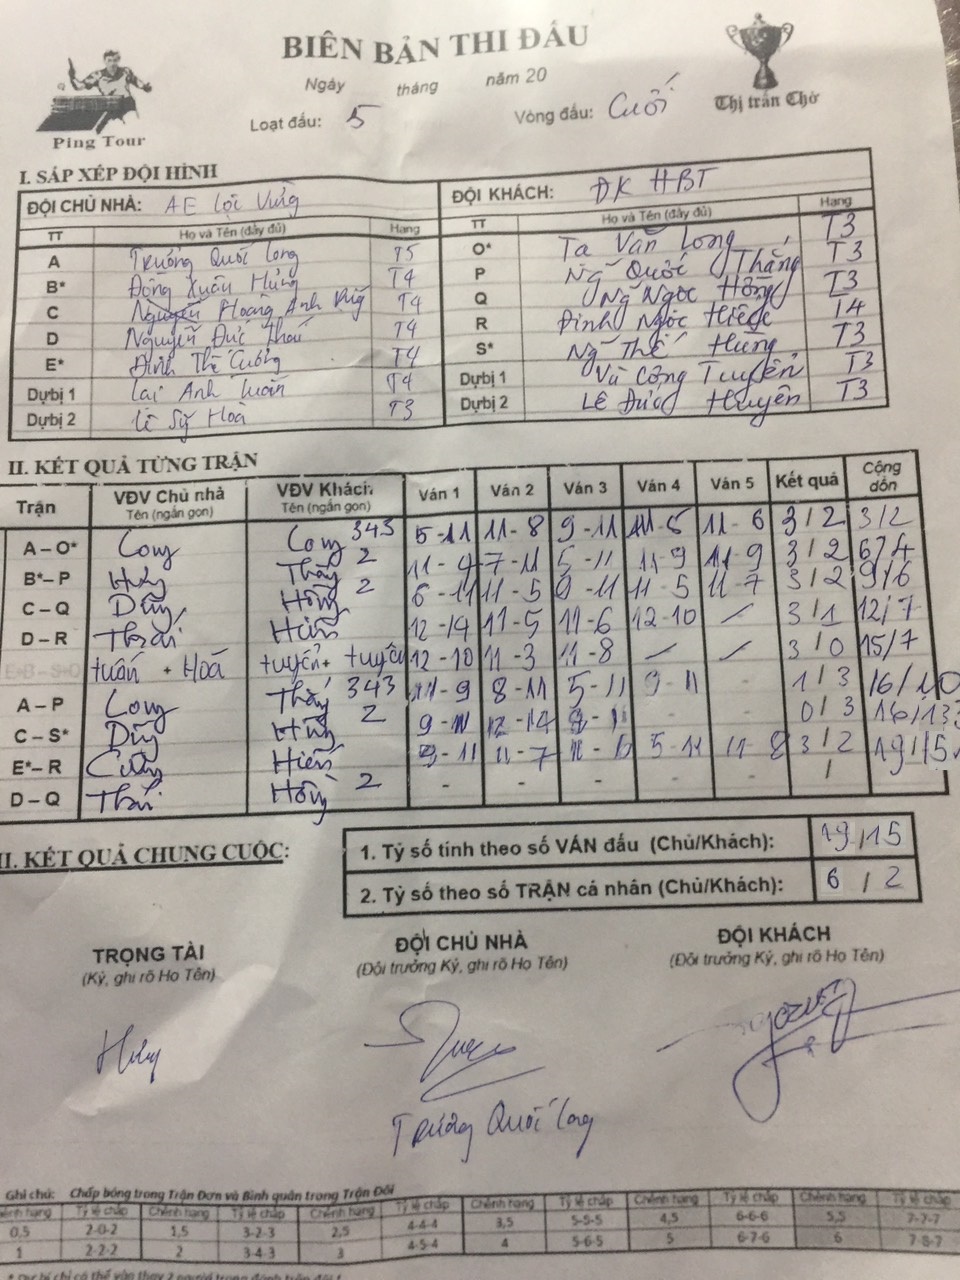 BIÊN BẢN THI ĐẤU
Ngày tháng năm 20
Loạt đấu: 5 Vòng đấu: Cuối
Ping Tour
Thị trấn Chờ
I. SẮP XẾP ĐỘI HÌNH
ĐỘI CHỦ NHÀ: AE Lộc Vừng ĐỘI KHÁCH: ĐK HBT
TT Họ và Tên (đầy đủ) Hạng TT Họ và Tên (đầy đủ) Hạng
A Trương Quốc Long T5 O* Tạ Văn Long T3
B* Đồng Xuân Hùng T4 P Ng Quốc Thắng T3
C Hoàng Anh T4 Q Ng Ngọc Hồng T3
D Nguyễn Đức Thái T4 R Đinh Ngọc Hiển T4
E* Đinh Thế Cường T4 S* Ng Thế Hùng T3
Dự bị 1 Lại Anh Tuấn T4 Dự bị 1 Vũ Công Tuyển T3
Dự bị 2 Lê Sỹ Hoà T3 Dự bị 2 Lê Đức Huyên T3
II. KẾT QUẢ TỪNG TRẬN
Trận VĐV Chủ nhà Tên (ngắn gọn) VĐV Khách Tên (ngắn gọn) Ván 1 Ván 2 Ván 3 Ván 4 Ván 5 Kết quả Cộng dồn
A – O* Long Long 343 5-11 11-8 9-11 11-6 11-6 3/2 3/2
B* – P Hùng Thắng 2 11-9 7-11 5-11 11-9 11-9 3/2 6/4
C – Q Dũng Hồng 2 6-11 11-5 9-11 11-5 11-7 3/2 9/6
D – R Thái Hiển 12-14 11-5 11-6 12-10 / 3/1 12/7
E+B – S+O Tuấn + Hoà 12-10 11-3 11-8 / / 3/0 15/7
A – P Long Thắng 343 11-9 8-11 5-11 9-11 - 1/3 16/10
C – S* Dũng Hùng 2 9-11 12-14 - - 0/3 16/13
E* – R Cường Hiển 9-11 11-7 5-11 11-8 3/2 19/15
D – Q Thái Hồng 2 - - - - - /
II. KẾT QUẢ CHUNG CUỘC:
1. Tỷ số tính theo số VÁN đấu (Chủ/Khách): 19/15
2. Tỷ số theo số TRẬN cá nhân (Chủ/Khách): 6/2
TRỌNG TÀI ĐỘI CHỦ NHÀ ĐỘI KHÁCH
(Ký, ghi rõ Họ Tên) (Đội trưởng Ký, ghi rõ Họ Tên) (Đội trưởng Ký, ghi rõ Họ Tên)
Trương Quốc Long
Ghi chú: Chấp bóng trong Trận Đơn và Bình quân trong Trận Đôi
Chênh hạng Tỷ lệ chấp Chênh hạng Tỷ lệ chấp Chênh hạng Tỷ lệ chấp Chênh hạng Tỷ lệ chấp Chênh hạng Tỷ lệ chấp Chênh hạng Tỷ lệ chấp
0,5 2-0-2 1,5 3-2-3 2,5 4-4-4 3,5 5-5-5 4,5 6-6-6 5,5 7-7-7
1 2-2-2 2 3-4-3 3 4-5-4 4 5-6-5 5 6-7-6 6 7-8-7
* Dự bị chỉ có thể vào thay 2 người trong đánh trận đôi !